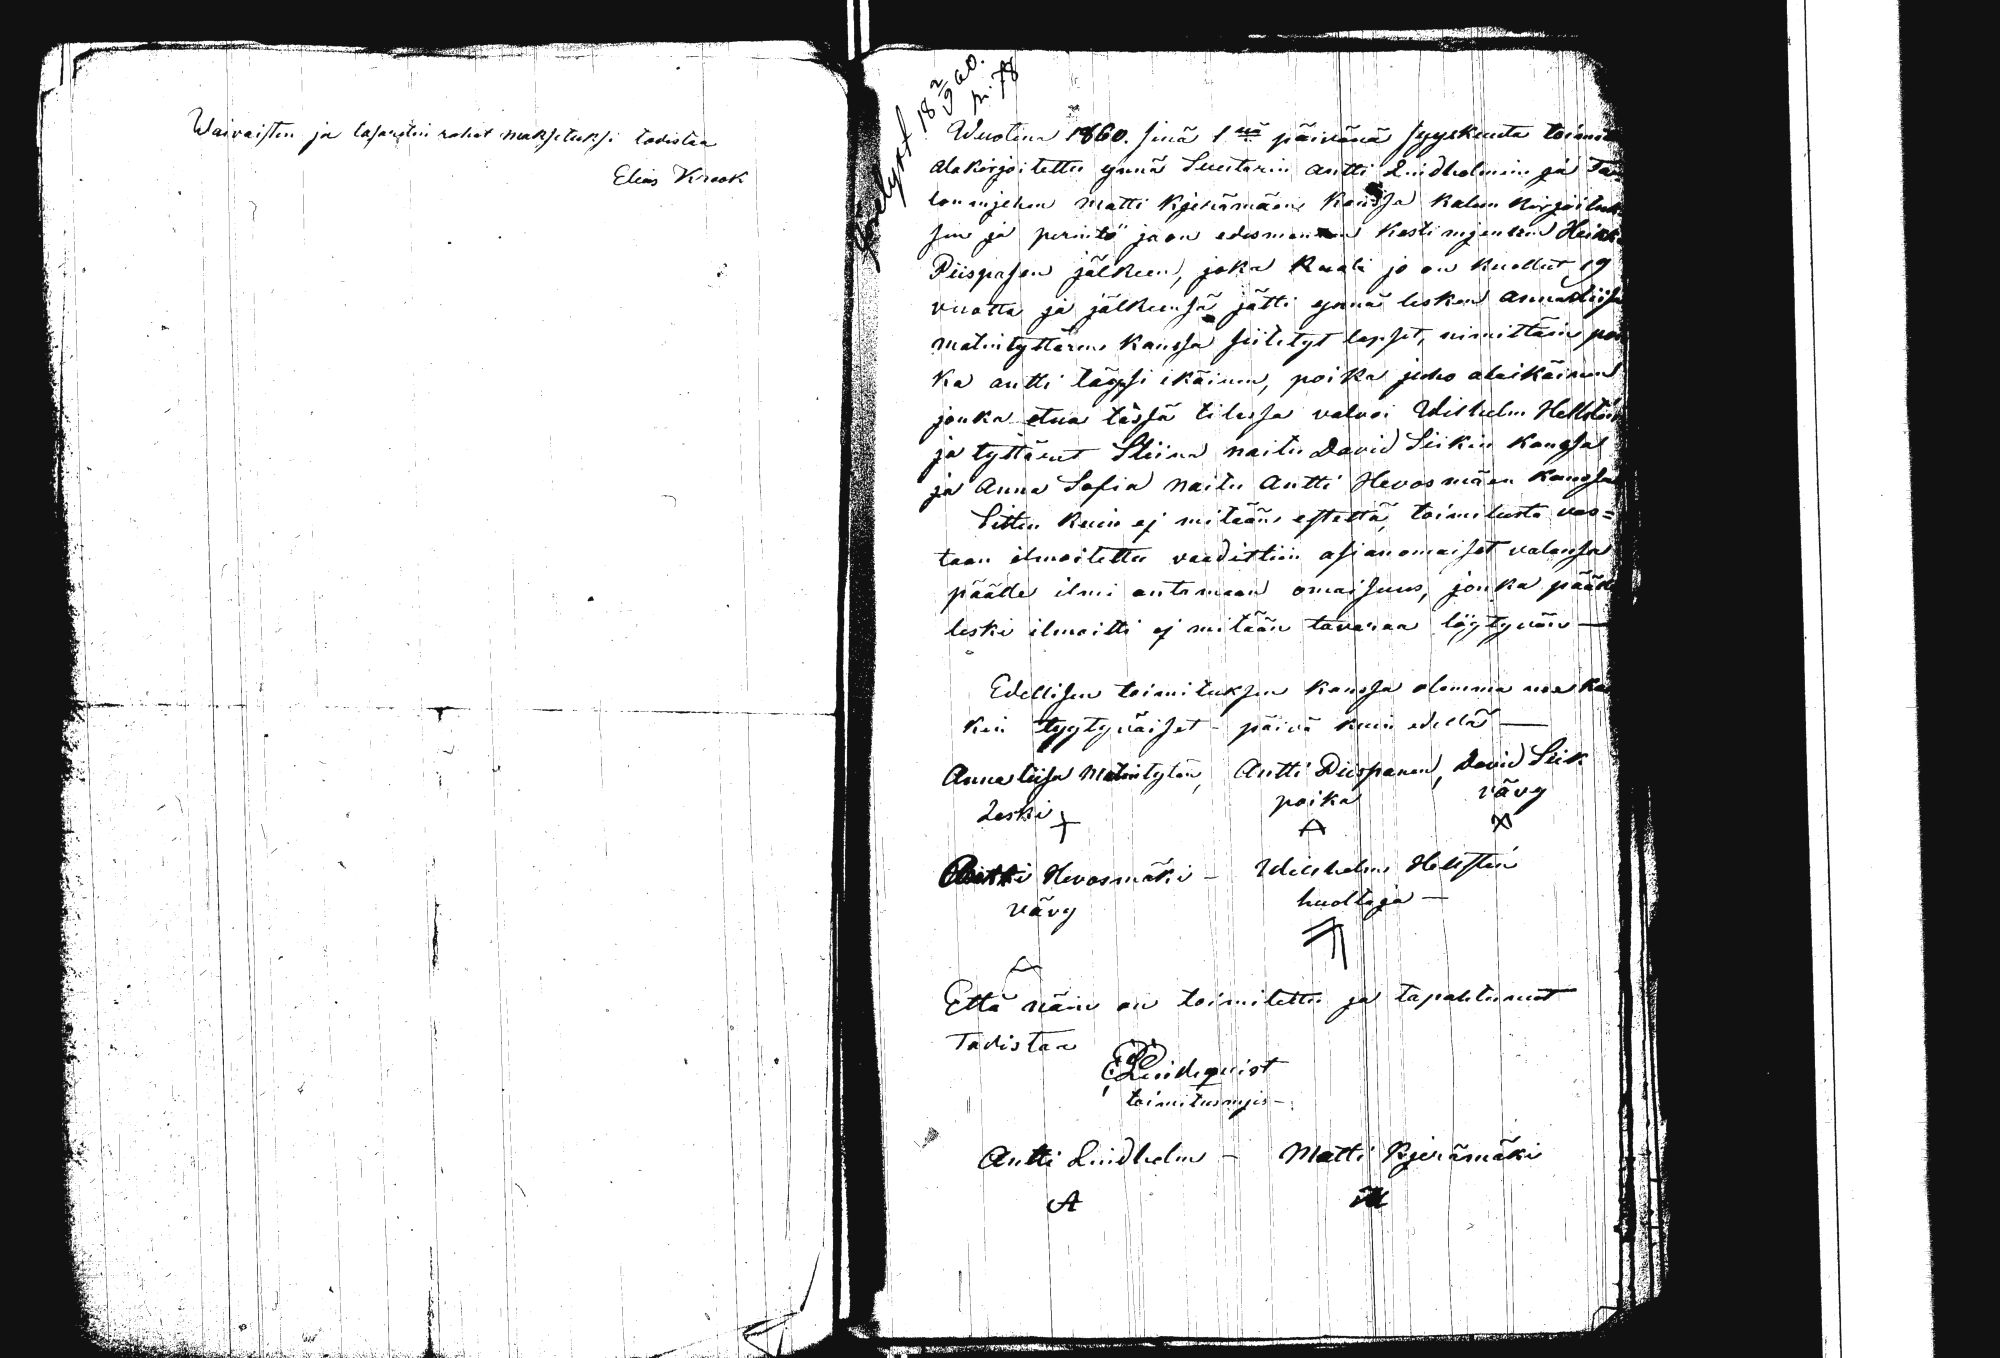 Waivaisten ja lasaretin rahat maksetuksi todistaa
Elias Krook
18 2/9 60.
N: 78
Wuotena 1860. sinä 1nä päivänä syyskuuta toimi
alakirjoitettu ynnä Luutarin Antti Lindholmin ja Ta
lonmjehen Matti Kjerämäen kanssa kalun kirjoituk
sen ja perintö jaon edesmennen Kestimjenhen Heikki
Piispasen jälkeen, joka Raali jo on kuollut 19
vuotta ja jälkeensä jätti ynnä lesken Annaliisa
Matintyttären kanssa siitetyt lapset, nimittäin poi
ka Antti täysi ikäinen, poika Juho alaikäinen
jonka etua tässä tilassa valvoi Wilhelm Hellsten
ja tyttäret Stiina naitu David Siikin kanssa
ja Anna Sofia naitu Antti Hevosmäen kanssa
Sitten kuin ej mitään estettä, toimitusta vas=
taan ilmoitettu vaadittiin asianomaiset valansa
päälle ilmi antamaan omaisuus, jonka pääle
leski ilmoitti ej mitään tavaraa löytyvän —
Edellisen toimituksen kanssa olemma me kai
kin tyytyväiset - päivä kuin edellä —
Annaliisa Matintytär, Antti Piispanen, David Siik
Leski poika vävy
Antti Hevosmäki - Wilhelm Hellsten
vävy huoltaja —
Että näin on toimitettu ja tapahtunut
Todistaa
E Lindequist
toimitusmjes -
Antti Lindholm - Matti Kjerämäki
A M